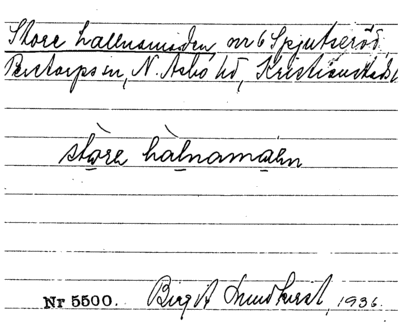 Store hallnamaden, nr 6 Spjutseröd,
Perstorps sn, N. Åsbo hd, Kristianstads l.
stòrɐ hàlnamaən
Nr 5500. Birgit Lundkvist, 1936.